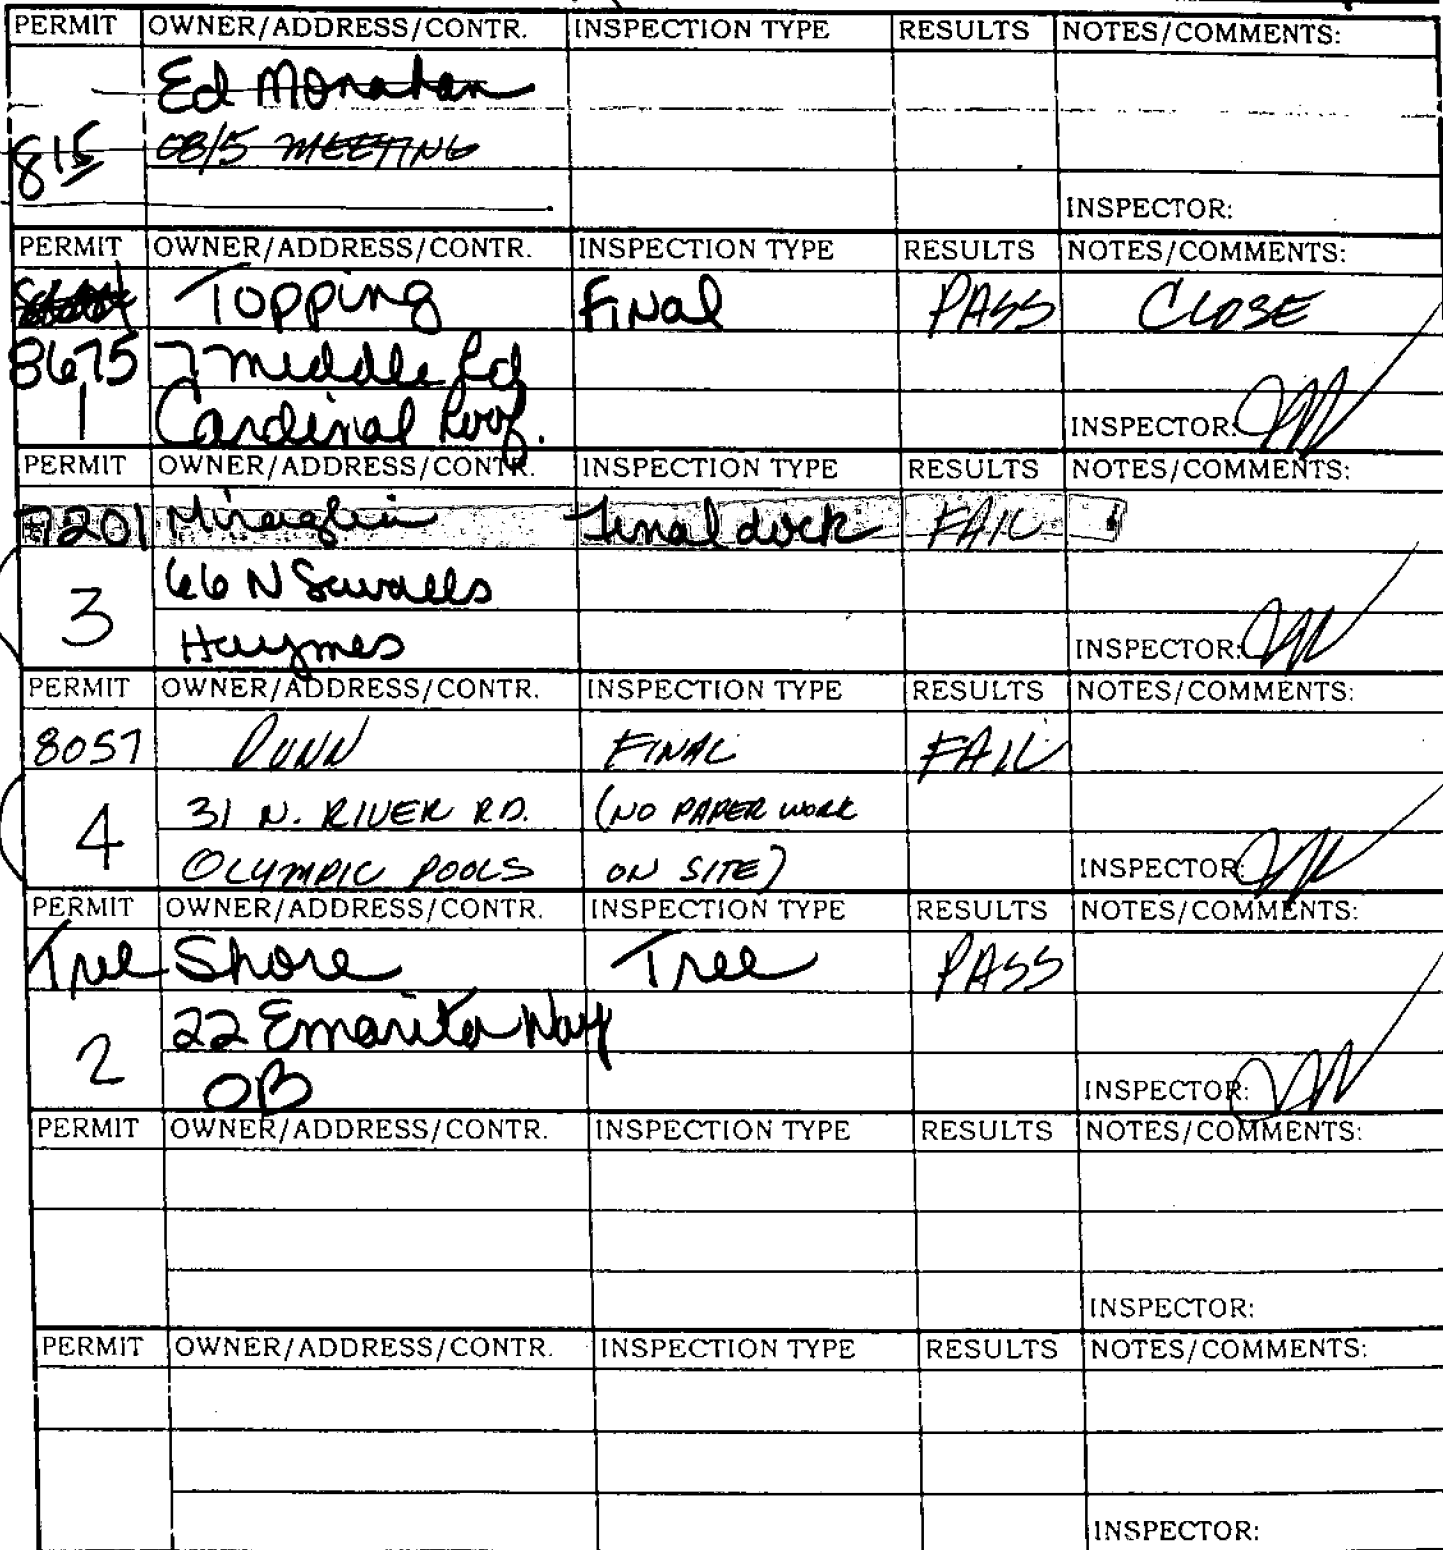 PERMIT OWNER/ADDRESS/CONTR. INSPECTION TYPE RESULTS NOTES/COMMENTS:
Ed Monahan
815 0815 MEETING
INSPECTOR:
PERMIT OWNER/ADDRESS/CONTR. INSPECTION TYPE RESULTS NOTES/COMMENTS:
Topping Final PASS CLOSE
8675 7 Middle Rd
1 Cardinal Roof. INSPECTOR:
PERMIT OWNER/ADDRESS/CONTR. INSPECTION TYPE RESULTS NOTES/COMMENTS:
7201 Miraglia Final dock FAIL
3 66 N Sewalls
Haymes INSPECTOR:
PERMIT OWNER/ADDRESS/CONTR. INSPECTION TYPE RESULTS NOTES/COMMENTS:
8057 DUNN FINAL FAIL
4 31 N. RIVER RD. (NO PAPER WORK
OLYMPIC POOLS ON SITE) INSPECTOR:
PERMIT OWNER/ADDRESS/CONTR. INSPECTION TYPE RESULTS NOTES/COMMENTS:
Tree Shore Tree PASS
2 22 Emarita Way
OB INSPECTOR:
PERMIT OWNER/ADDRESS/CONTR. INSPECTION TYPE RESULTS NOTES/COMMENTS:
INSPECTOR:
PERMIT OWNER/ADDRESS/CONTR. INSPECTION TYPE RESULTS NOTES/COMMENTS:
INSPECTOR: